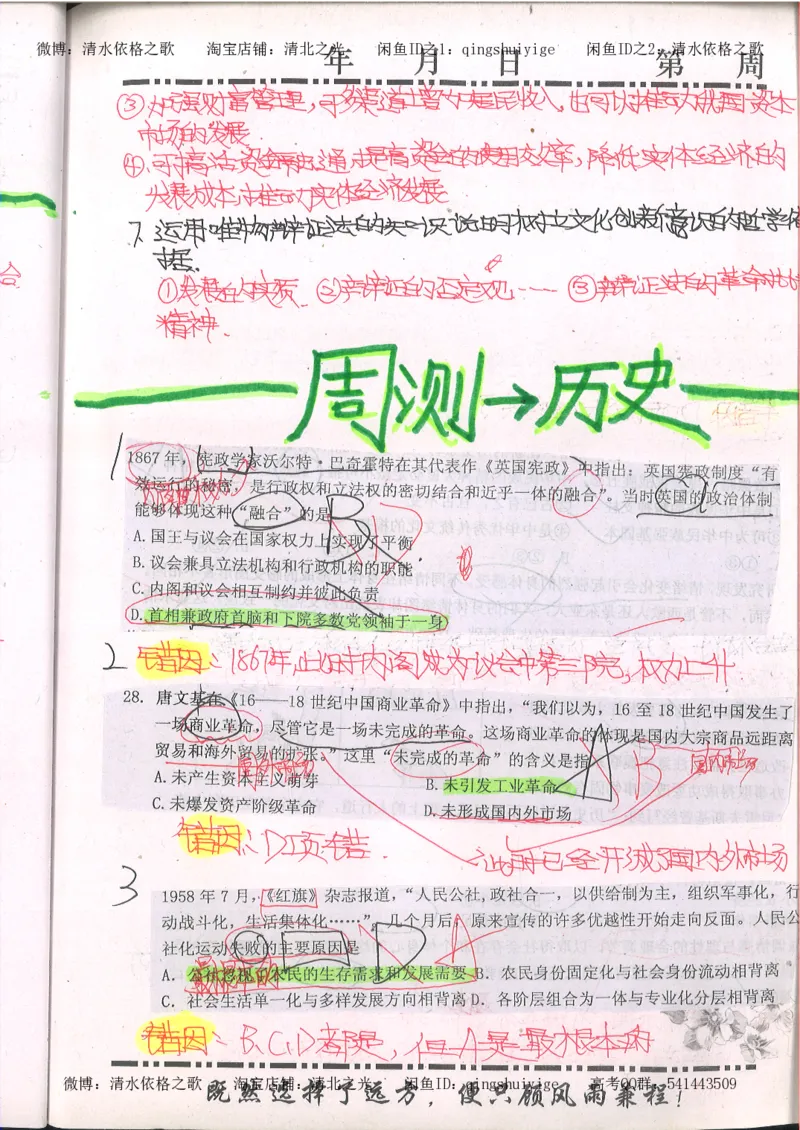 微博：清水依格之歌 淘宝店铺：清北之光 闲鱼ID之1：qingshuiyige 闲鱼ID之2：清水依格之歌
年 月 日 第 周
③加强财富管理，可多渠道增加居民收入，也可以推动我国资本
市场的发展
④可盘活资金融通提高资金的使用效率，降低实体经济的
发展成本，推动实体经济发展
7.运用唯物辩证法的知识说明树立文化创新意识的哲学依
据.
①发展的实质 ②辩证的否定观…… ③辩证法的革命批判
精神.
周测→历史
1
1867年，宪政学家沃尔特·巴奇霍特在其代表作《英国宪政》中指出：英国宪政制度“有
效运行的秘密，是行政权和立法权的密切结合和近乎一体的融合”。当时英国的政治体制
能够体现这种“融合”的是
A.国王与议会在国家权力上实现了平衡
B.议会兼具立法机构和行政机构的职能
C.内阁和议会相互制约并彼此负责
D.首相兼政府首脑和下院多数党领袖于一身
错因：1867年，此时内阁成为议会中第三院，权力上升
2
28. 唐文基在《16——18世纪中国商业革命》中指出，“我们以为，16至18世纪中国发生了
一场商业革命，尽管它是一场未完成的革命。这场商业革命的体现是国内大宗商品远距离
贸易和海外贸易的扩张。”这里“未完成的革命”的含义是指
A.未产生资本主义萌芽 B.未引发工业革命
C.未爆发资产阶级革命 D.未形成国内外市场
错因：D项错.
此时已经形成了国内外市场
3
1958年7月，《红旗》杂志报道，“人民公社,政社合一，以供给制为主，组织军事化，行
动战斗化，生活集体化……”。几个月后，原来宣传的许多优越性开始走向反面。人民公
社化运动失败的主要原因是
A．公社忽视了农民的生存需求和发展需要 B．农民身份固定化与社会身份流动相背离
C．社会生活单一化与多样发展方向相背离 D．各阶层组合为一体与专业化分层相背离
错因：B、C、D都是，但A是最根本的
微博：清水依格之歌 淘宝店铺：清北之光 闲鱼ID：qingshuiyige 高考QQ群：541443509
既然选择了远方，便只顾风雨兼程！